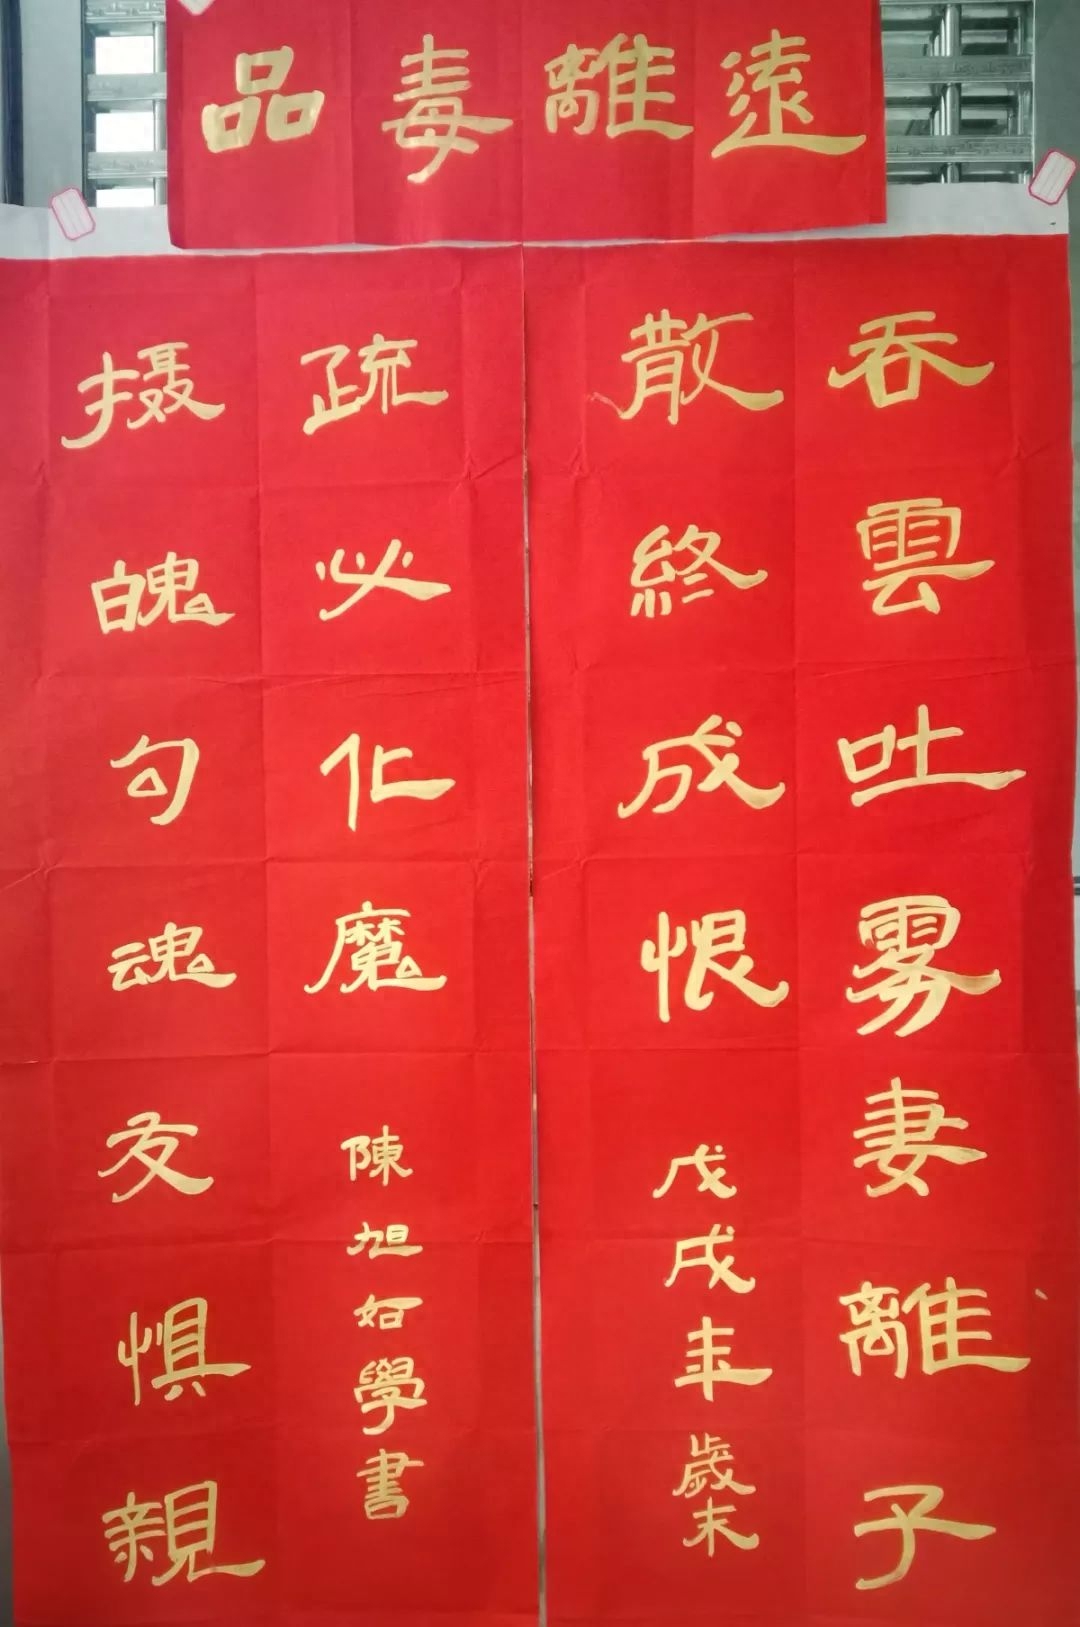 遠離毒品
吞雲吐雾妻離子
散終成恨
戊戌年歲末
摄魄勾魂友惧親
疏必化魔
陳旭如學書